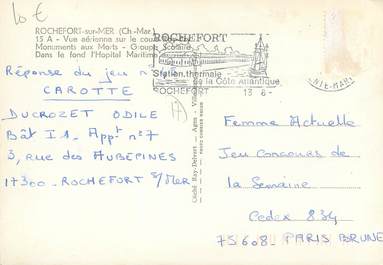 10 €
ROCHEFORT-sur-MER (Ch-Mar.)
15 A - Vue aérienne sur le cou
Monuments aux Morts - Groupe Scolaire
Dans le fond l'Hopital Maritime
ROCHEFORT
Station thermale
de la Côte Atlantique
ROCHEFORT
13 6-
NTE-MAR
Réponse du jeu n°
CAROTTE
DUCROZET ODILE
Bât I1. Appt n°7
3, rue des AUBEPINES
17300 - ROCHEFORT S/Mer
Cliché Ray-Delvert - Agen - Villen
Femme Actuelle
Jeu Concours de
la Semaine
Cedex 834
75608 - PARIS BRUNE